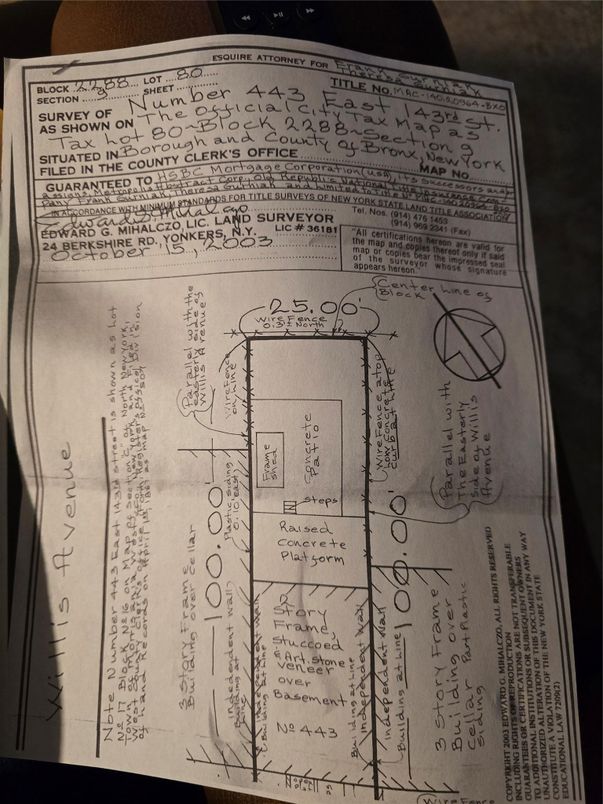 ESQUIRE ATTORNEY FOR Frank
Theresa
BLOCK 2288 LOT 80
SECTION 9 SHEET
TITLE NO. MAC-140-20964-BXO
SURVEY OF Number 443 East 143rd St.
AS SHOWN ON The Official City Tax Map as
Tax Lot 80~Block 2288~Section 9
SITUATED IN Borough and County of Bronx, New York
FILED IN THE COUNTY CLERK'S OFFICE MAP No.
GUARANTEED TO HSBC Mortgage Corporation (USA), its Successors and
assigns, Metropolis Abstract Corp., Old Republic National Title Insurance Com-
pany Frank Theresa and limited to Title No. MAC-140-20964-BXO
IN ACCORDANCE WITH MINIMUM STANDARDS FOR TITLE SURVEYS OF NEW YORK STATE LAND TITLE ASSOCIATION
Edward G. Mihalczo
EDWARD G. MIHALCZO LIC. LAND SURVEYOR
24 BERKSHIRE RD. YONKERS, N.Y. LIC # 36181
October 15, 2003
Tel. Nos. (914) 476 1453
(914) 969 2241 (Fax)
"All certifications hereon are valid for
the map and copies thereof only if said
map or copies bear the impressed seal
of the surveyor whose signature
appears hereon"
Center Line of
Block
25.00'
Wire Fence
0.3' North
Parallel with the
Easterly side of
Willis Avenue
Wire Fence
on Line
Wire Fence atop
Low Concrete
curb at Line
Parallel with
The Easterly
side of Willis
Avenue
Frame
shed
Concrete
Patio
N
steps
Raised
Concrete
Platform
100.00'
100.00'
Plastic siding
2 Story
Frame
Stuccoed
& Art. stone
Veneer
over
Basement
No 443
3 Story Frame
Building over Cellar
Independent Wall
Building at Line
Independent Wall
Building at Line
Building at Line
Independent Wall
Independent Wall
Building at Line
3 Story Frame
Building over
Cellar Part Plastic
siding
Wire Fence
Willis Avenue
Note Number 443 East 143rd street is shown as Lot
No 17 Block No 16 on Map of Section "C" of North New York,
COPYRIGHT 2003 EDWARD G. MIHALCZO, ALL RIGHTS RESERVED
INCLUDING RIGHTS OF REPRODUCTION
GUARANTEES OR CERTIFICATIONS ARE NOT TRANSFERABLE
TO ADDITIONAL INSTITUTIONS OR SUBSEQUENT OWNERS
UNAUTHORIZED ALTERATION OF THIS DOCUMENT IN ANY WAY
CONSTITUTE A VIOLATION OF THE NEW YORK STATE
EDUCATIONAL LAW 7209(2)